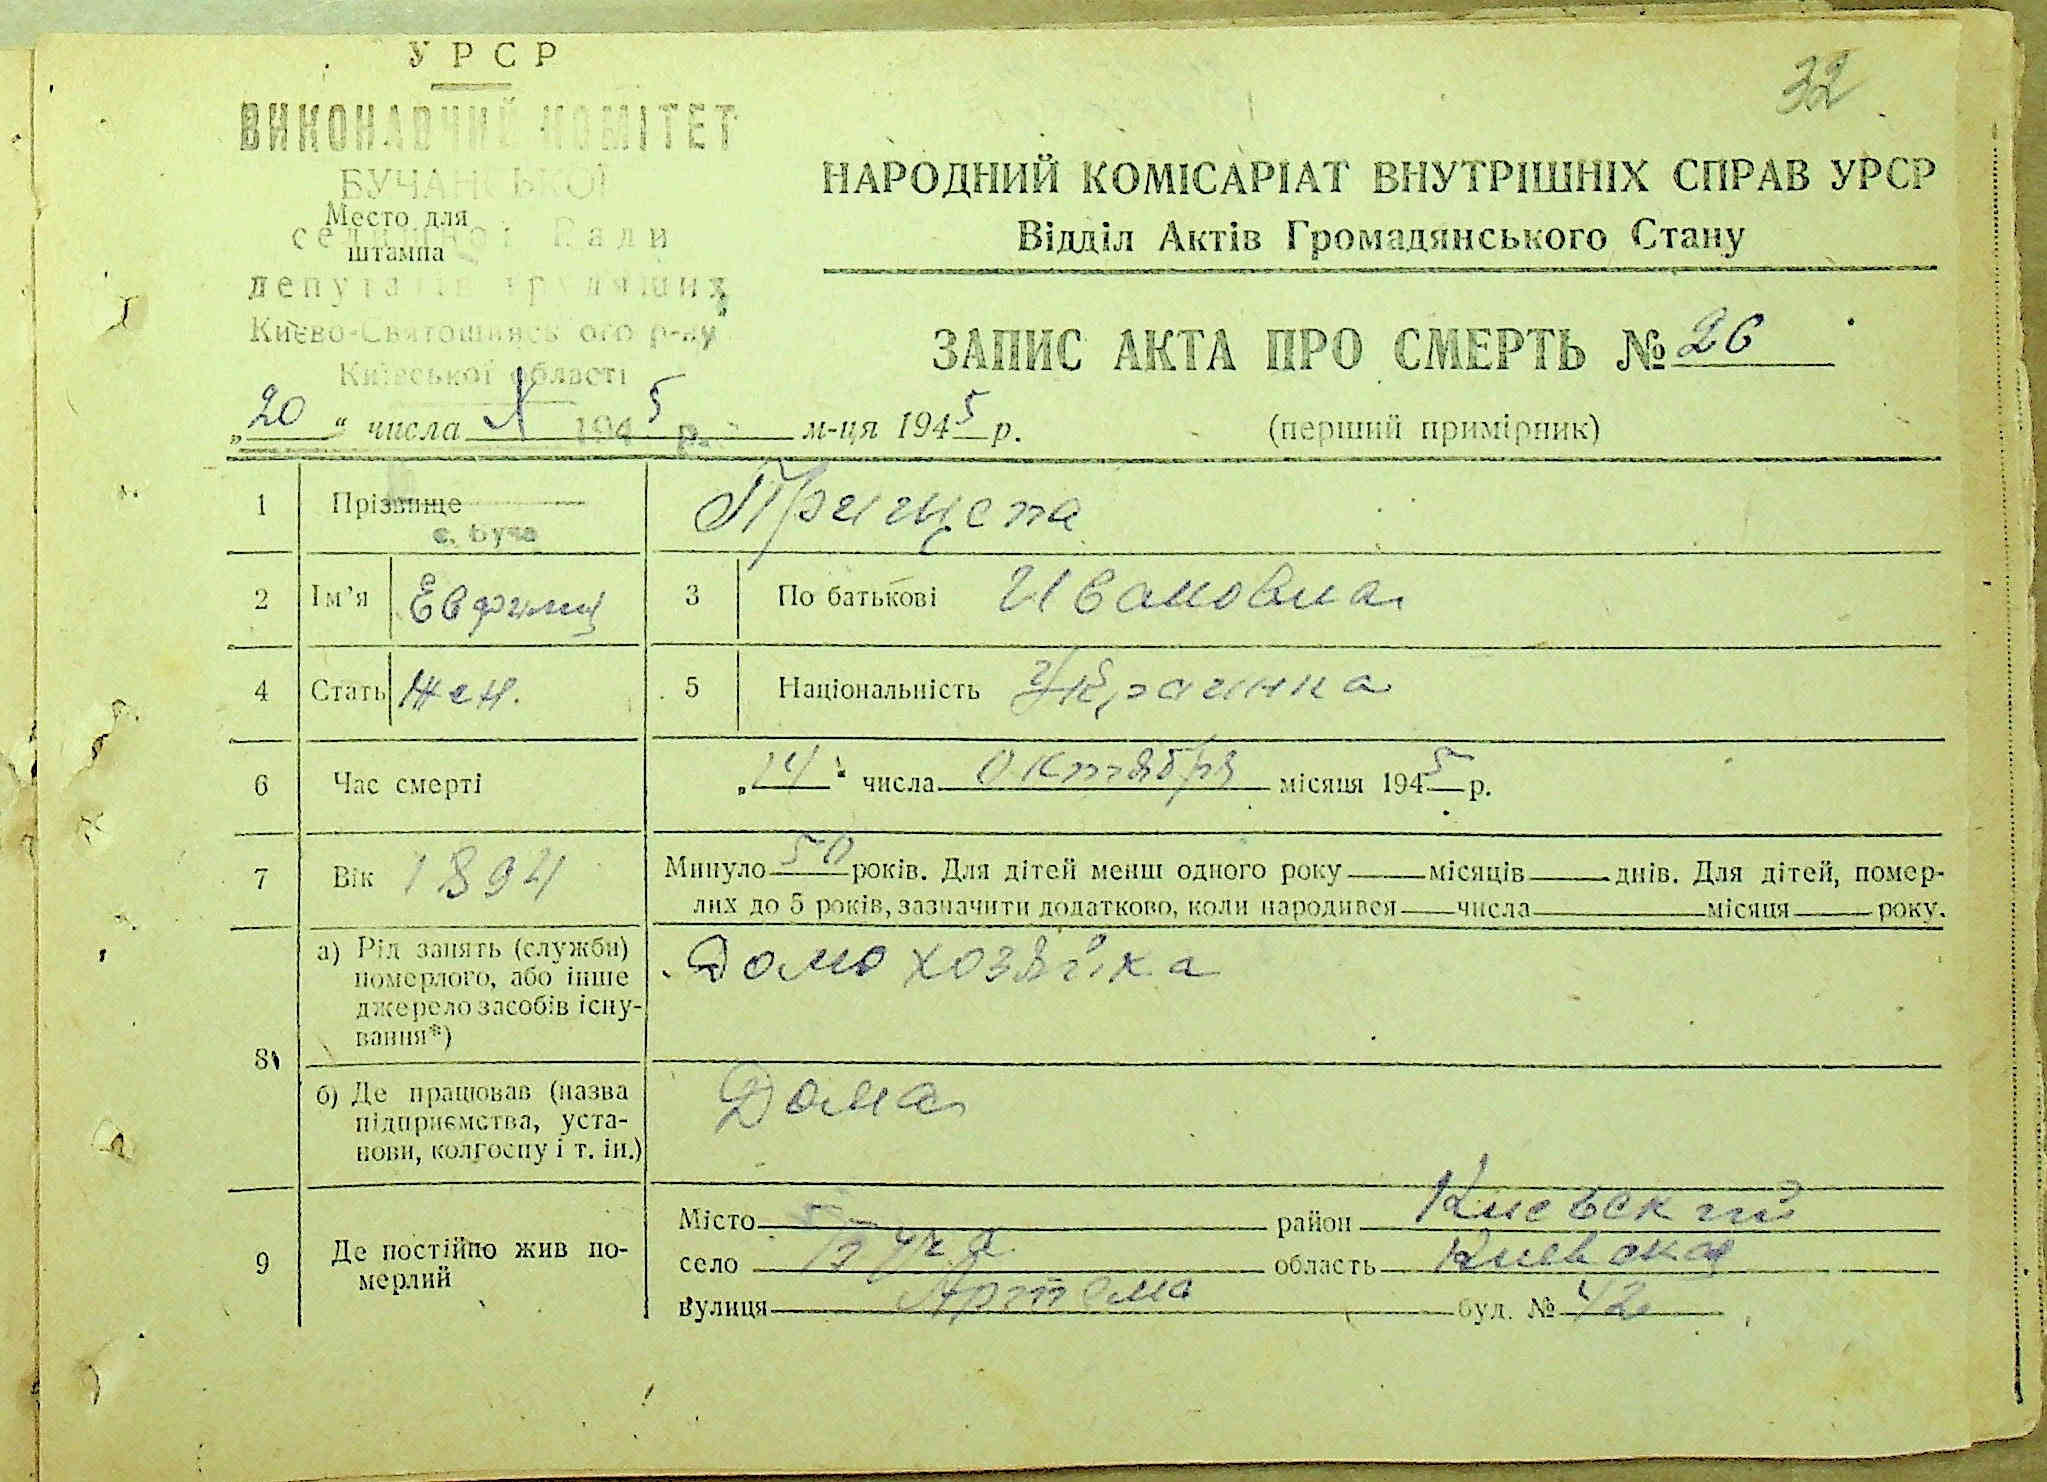 УРСР
32
ВИКОНАВЧИЙ КОМІТЕТ
БУЧАНСЬКОЇ
Место для
штампа
селищної Ради
депутатів трудящих
Києво-Святошинського р-ну
Київської області
НАРОДНИЙ КОМІСАРІАТ ВНУТРІШНІХ СПРАВ УРСР
Відділ Актів Громадянського Стану
ЗАПИС АКТА ПРО СМЕРТЬ № 26
„20“ числа X 1945 р. м-ця 1945 р.
(перший примірник)
1 Прізвище Прищепа
с. Буча
2 Ім’я Евфимия 3 По батькові Ивановна
4 Стать Жен. 5 Національність Украинка
6 Час смерті „14“ числа Октября місяця 1945 р.
7 Вік 1894 Минуло 50 років. Для дітей менш одного року місяців днів. Для дітей, помер-
лих до 5 років, зазначити додатково, коли народився числа місяця року.
8 а) Рід занять (служби)
померлого, або інше
джерело засобів існу-
вання*)
Домохозяйка
б) Де працював (назва
підприємства, уста-
нови, колгоспу і т. ін.)
Дома
9 Де постійно жив по-
мерлий
Місто район Киевский
село Буча область Киевская
вулиця Артема буд. № 42